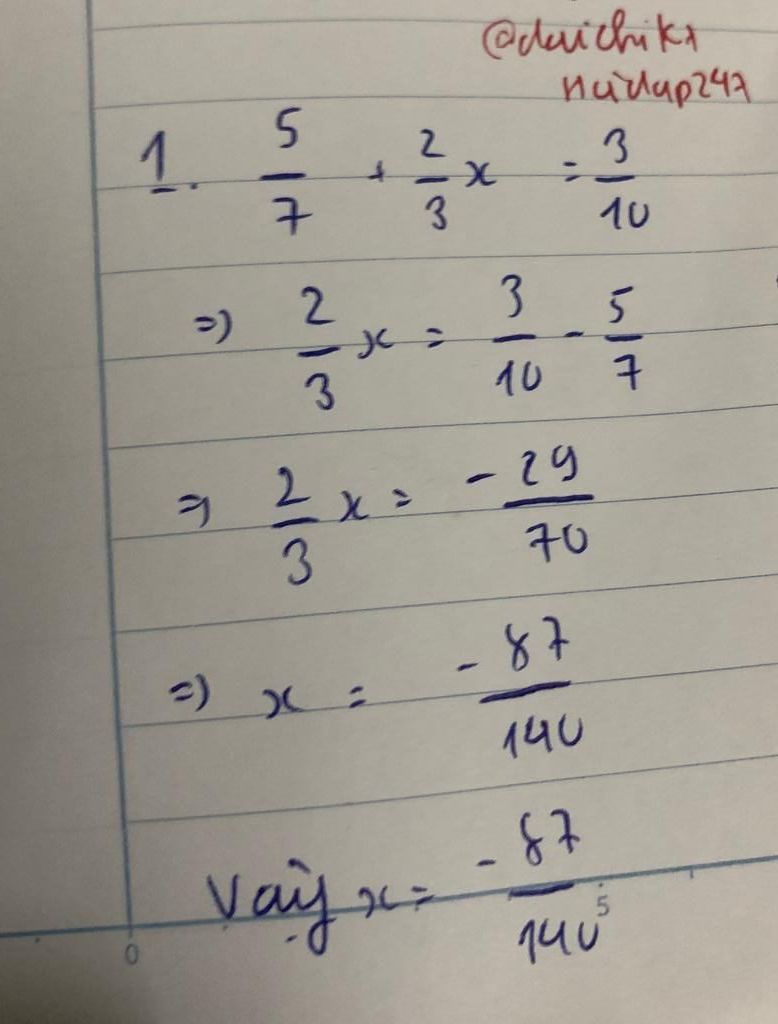 @daichik1
hoidap247
1. 5/7 + 2/3 x = 3/10
=) 2/3 x = 3/10 - 5/7
=) 2/3 x = -29/70
=) x = -87/140
Vậy x = -87/140
0 5